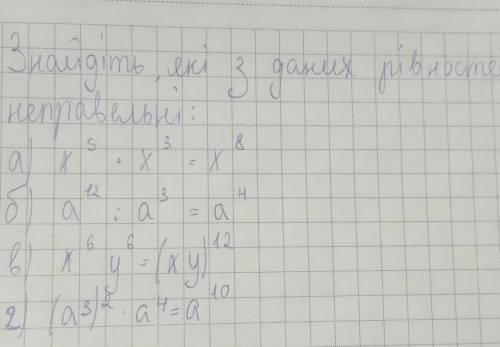 Знайдіть, які з даних рівносте
неправельні:
а) x⁵ · x³ = x⁸
б) a¹² : a³ = a⁴
в) x⁶ y⁶ = (xy)¹²
г) (a³)² · a⁴ = a¹⁰